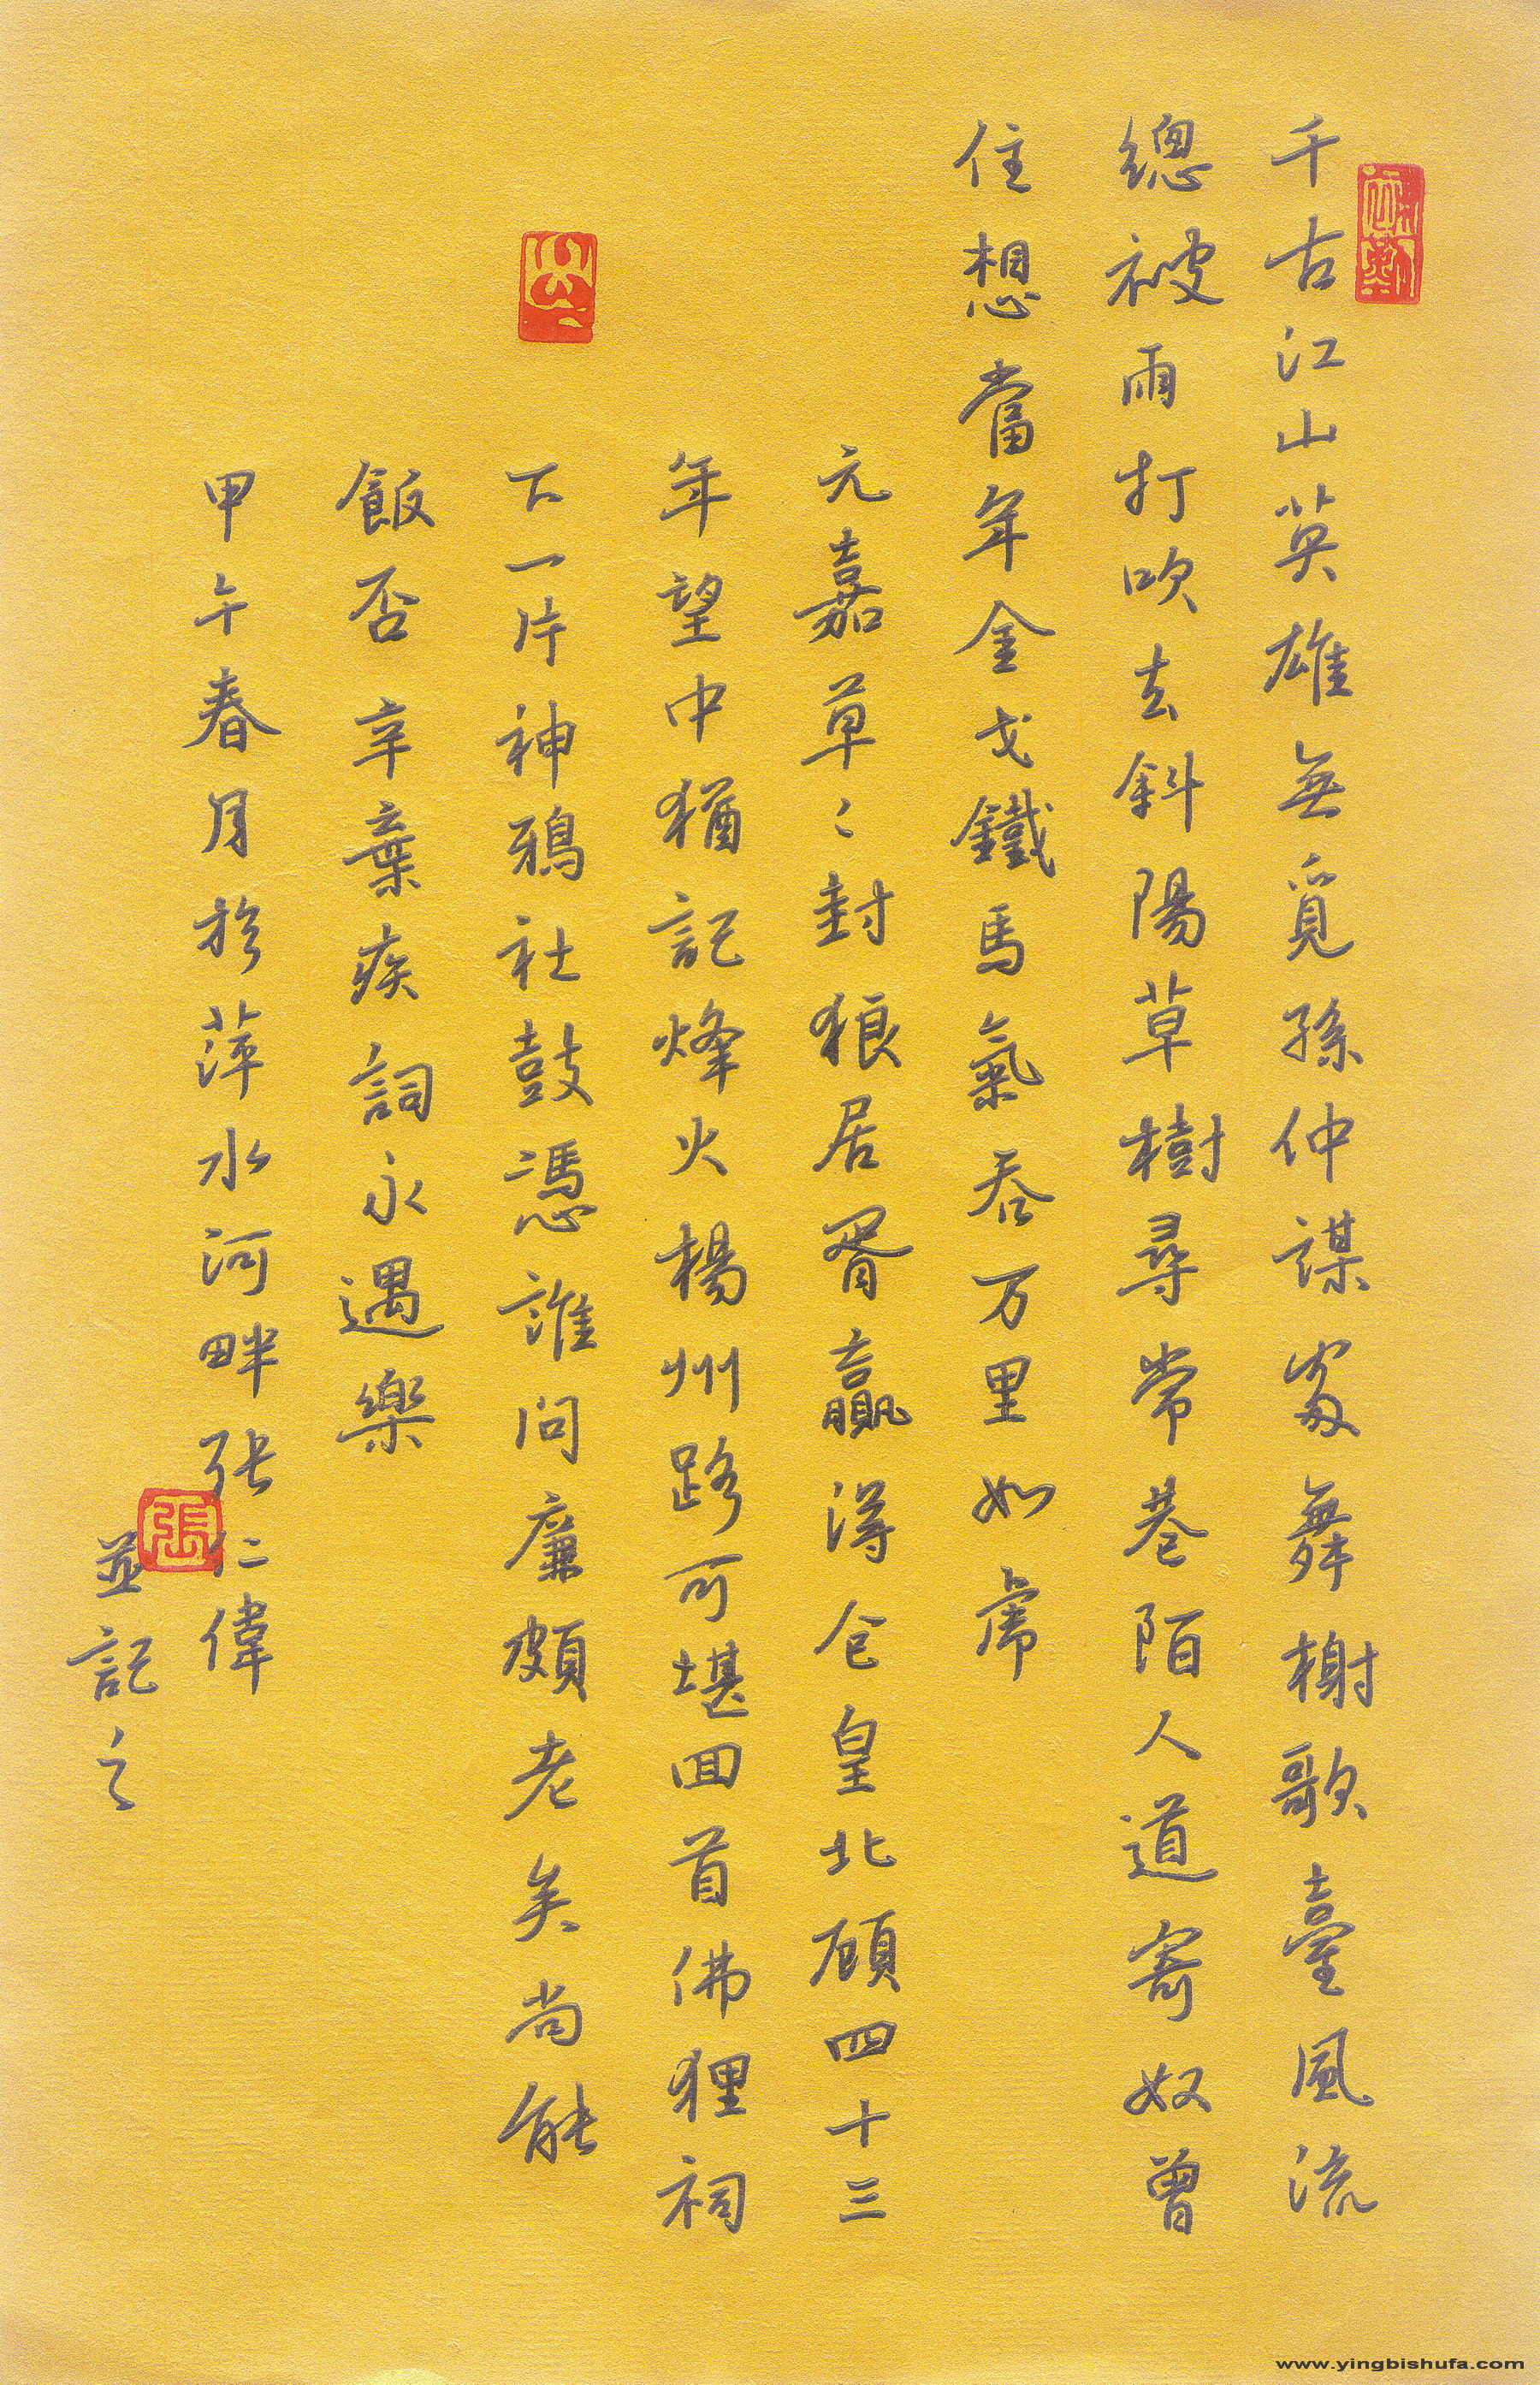 千古江山英雄無覓孫仲謀處舞榭歌臺風流
總被雨打吹去斜陽草樹尋常巷陌人道寄奴曾
住想當年金戈鐵馬氣吞万里如虎
元嘉草〻封狼居胥贏得仓皇北顧四十三
年望中猶記烽火楊州路可堪回首佛狸祠
下一片神鴉社鼓憑誰問廉頗老矣尚能
飯否 辛棄疾詞永遇樂
甲午春月於萍水河畔張仁偉
並記之
張
www.yingbishufa.com